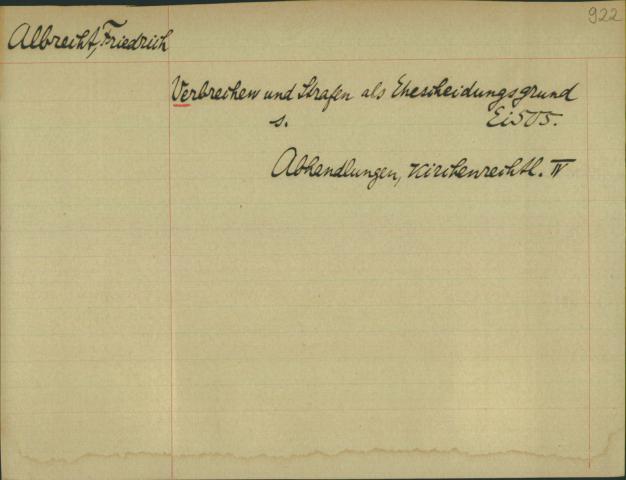 922
Albrecht, Friedrich
Verbrechen und Strafen als Ehescheidungsgrund
s. Ei505.
Abhandlungen, kirchenrechtl. IV